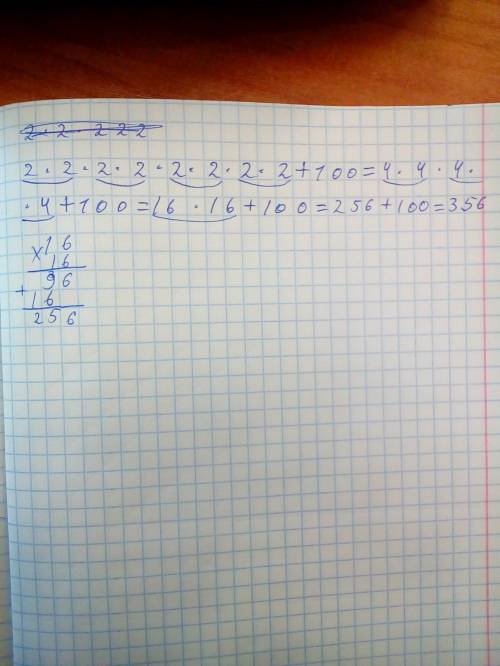 2 · 2 · 2 2 2
2 · 2 · 2 · 2 · 2 · 2 · 2 · 2 + 100 = 4 · 4 · 4 ·
· 4 + 100 = 16 · 16 + 100 = 256 + 100 = 356
× 16
16
+ 96
16
256